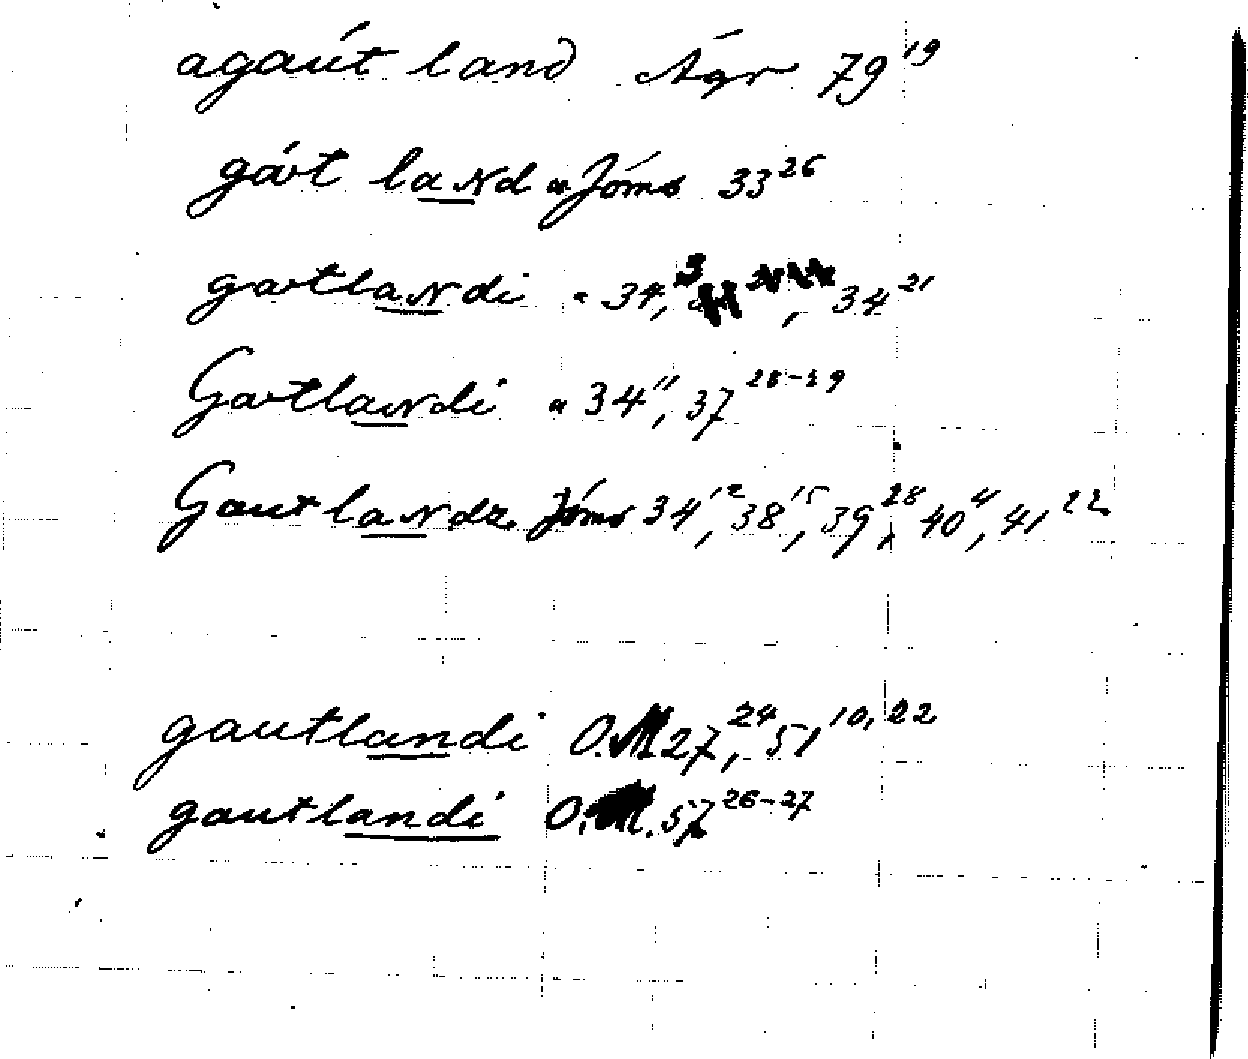 agaút land Ágr 79¹⁹
gavt laɴd " Jóms 33²⁶
gavtlaɴdi " 34,³ , 34²¹
Gavtlaɴdi " 34¹¹, 37²⁸⁻²⁹
Gautlaɴdz Jóms 34¹², 38¹⁵, 39²⁸, 40⁴, 41²²
gautlandi O.M 27²⁴, 51¹⁰,²²
gautlandi O.M. 57²⁶⁻²⁷